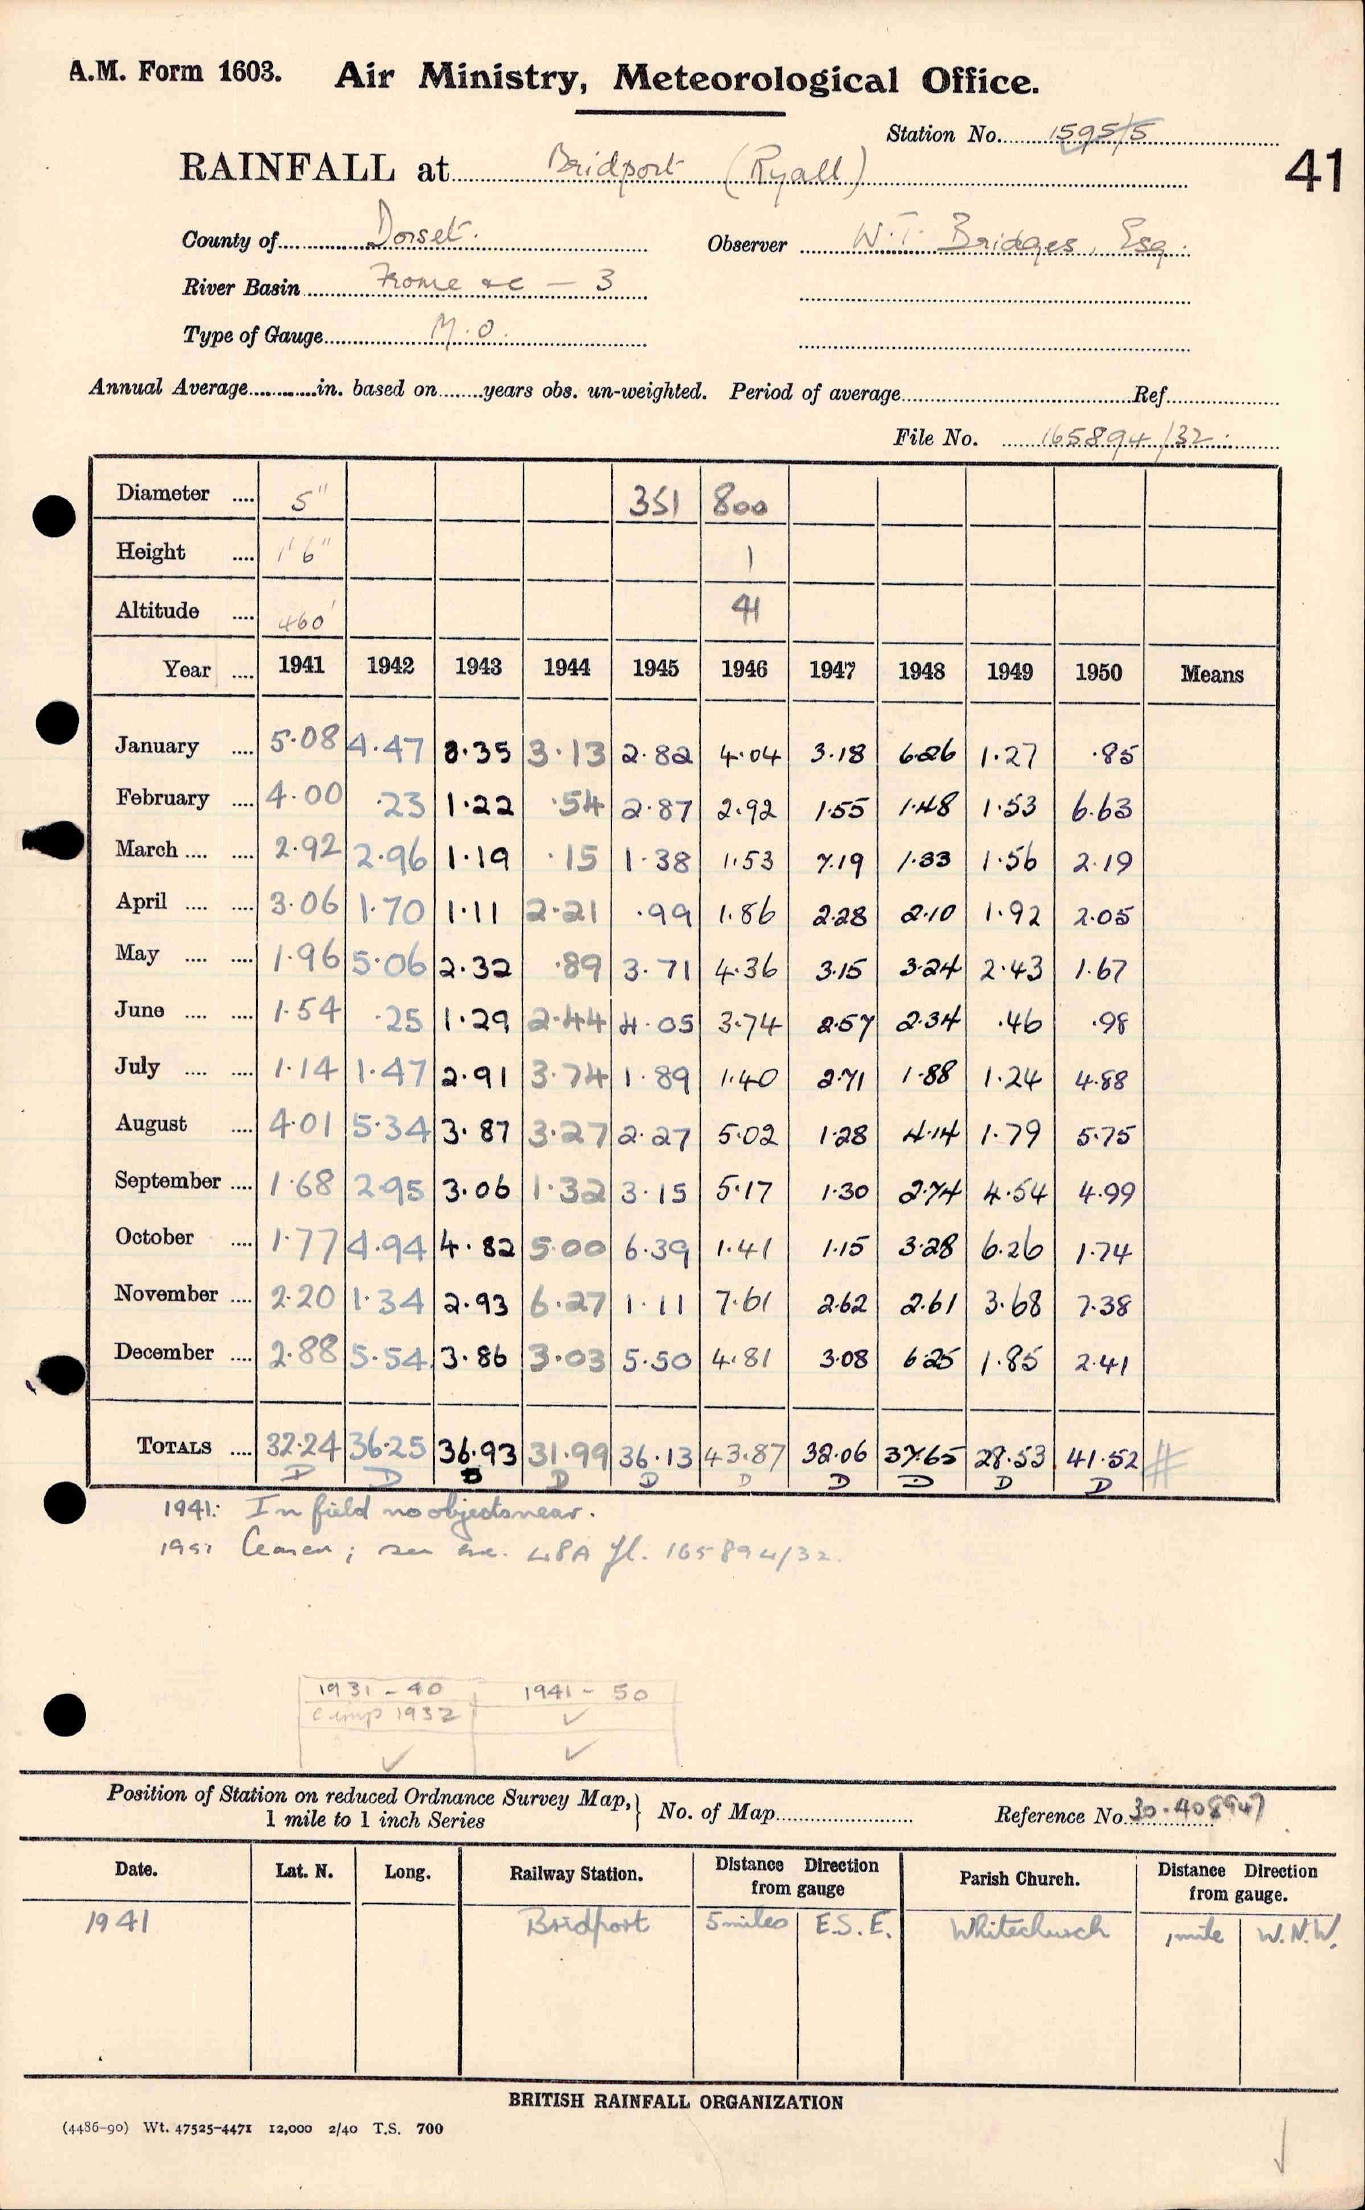 A.M. Form 1603. Air Ministry, Meteorological Office.
Station No. 1595/5
41
RAINFALL at Bridport (Ryall)
County of Dorset. Observer W.T. Bridges, Esq.
River Basin Frome &c — 3
Type of Gauge M.O.
Annual Average in. based on years obs. un-weighted. Period of average Ref
File No. 165894/32.
Diameter 5" 351 800
Height 1'6" 1
Altitude 460' 41
Year 1941 1942 1943 1944 1945 1946 1947 1948 1949 1950 Means
January 5.08 4.47 8.35 3.13 2.82 4.04 3.18 6.26 1.27 .85
February 4.00 .23 1.22 .54 2.87 2.92 1.55 1.48 1.53 6.63
March 2.92 2.96 1.19 .15 1.38 1.53 7.19 1.33 1.56 2.19
April 3.06 1.70 1.11 2.21 .99 1.86 2.28 2.10 1.92 2.05
May 1.96 5.06 2.32 .89 3.71 4.36 3.15 3.24 2.43 1.67
June 1.54 .25 1.29 2.44 4.05 3.74 2.57 2.34 .46 .98
July 1.14 1.47 2.91 3.74 1.89 1.40 2.71 1.88 1.24 4.88
August 4.01 5.34 3.87 3.27 2.27 5.02 1.28 4.14 1.79 5.75
September 1.68 2.95 3.06 1.32 3.15 5.17 1.30 2.74 4.54 4.99
October 1.77 4.94 4.82 5.00 6.39 1.41 1.15 3.28 6.26 1.74
November 2.20 1.34 2.93 6.27 1.11 7.61 2.62 2.61 3.68 7.38
December 2.88 5.54 3.86 3.03 5.50 4.81 3.08 6.25 1.85 2.41
TOTALS 32.24 36.25 36.93 31.99 36.13 43.87 32.06 37.65 28.53 41.52 #
D D D D D D D D D D
1941: In field no objects near.
1951 ; see enc. 48A fl. 165894/32.
1931 - 40 1941 - 50
comp 1932 ✓
✓ ✓
Position of Station on reduced Ordnance Survey Map, } No. of Map Reference No. 30.408947
1 mile to 1 inch Series
Date. Lat. N. Long. Railway Station. Distance Direction from gauge Parish Church. Distance Direction from gauge.
1941 Bridport 5 miles E.S.E. Whitechurch 1 mile W.N.W.
BRITISH RAINFALL ORGANIZATION
(4486-90) Wt. 47525-4471 12,000 2/40 T.S. 700